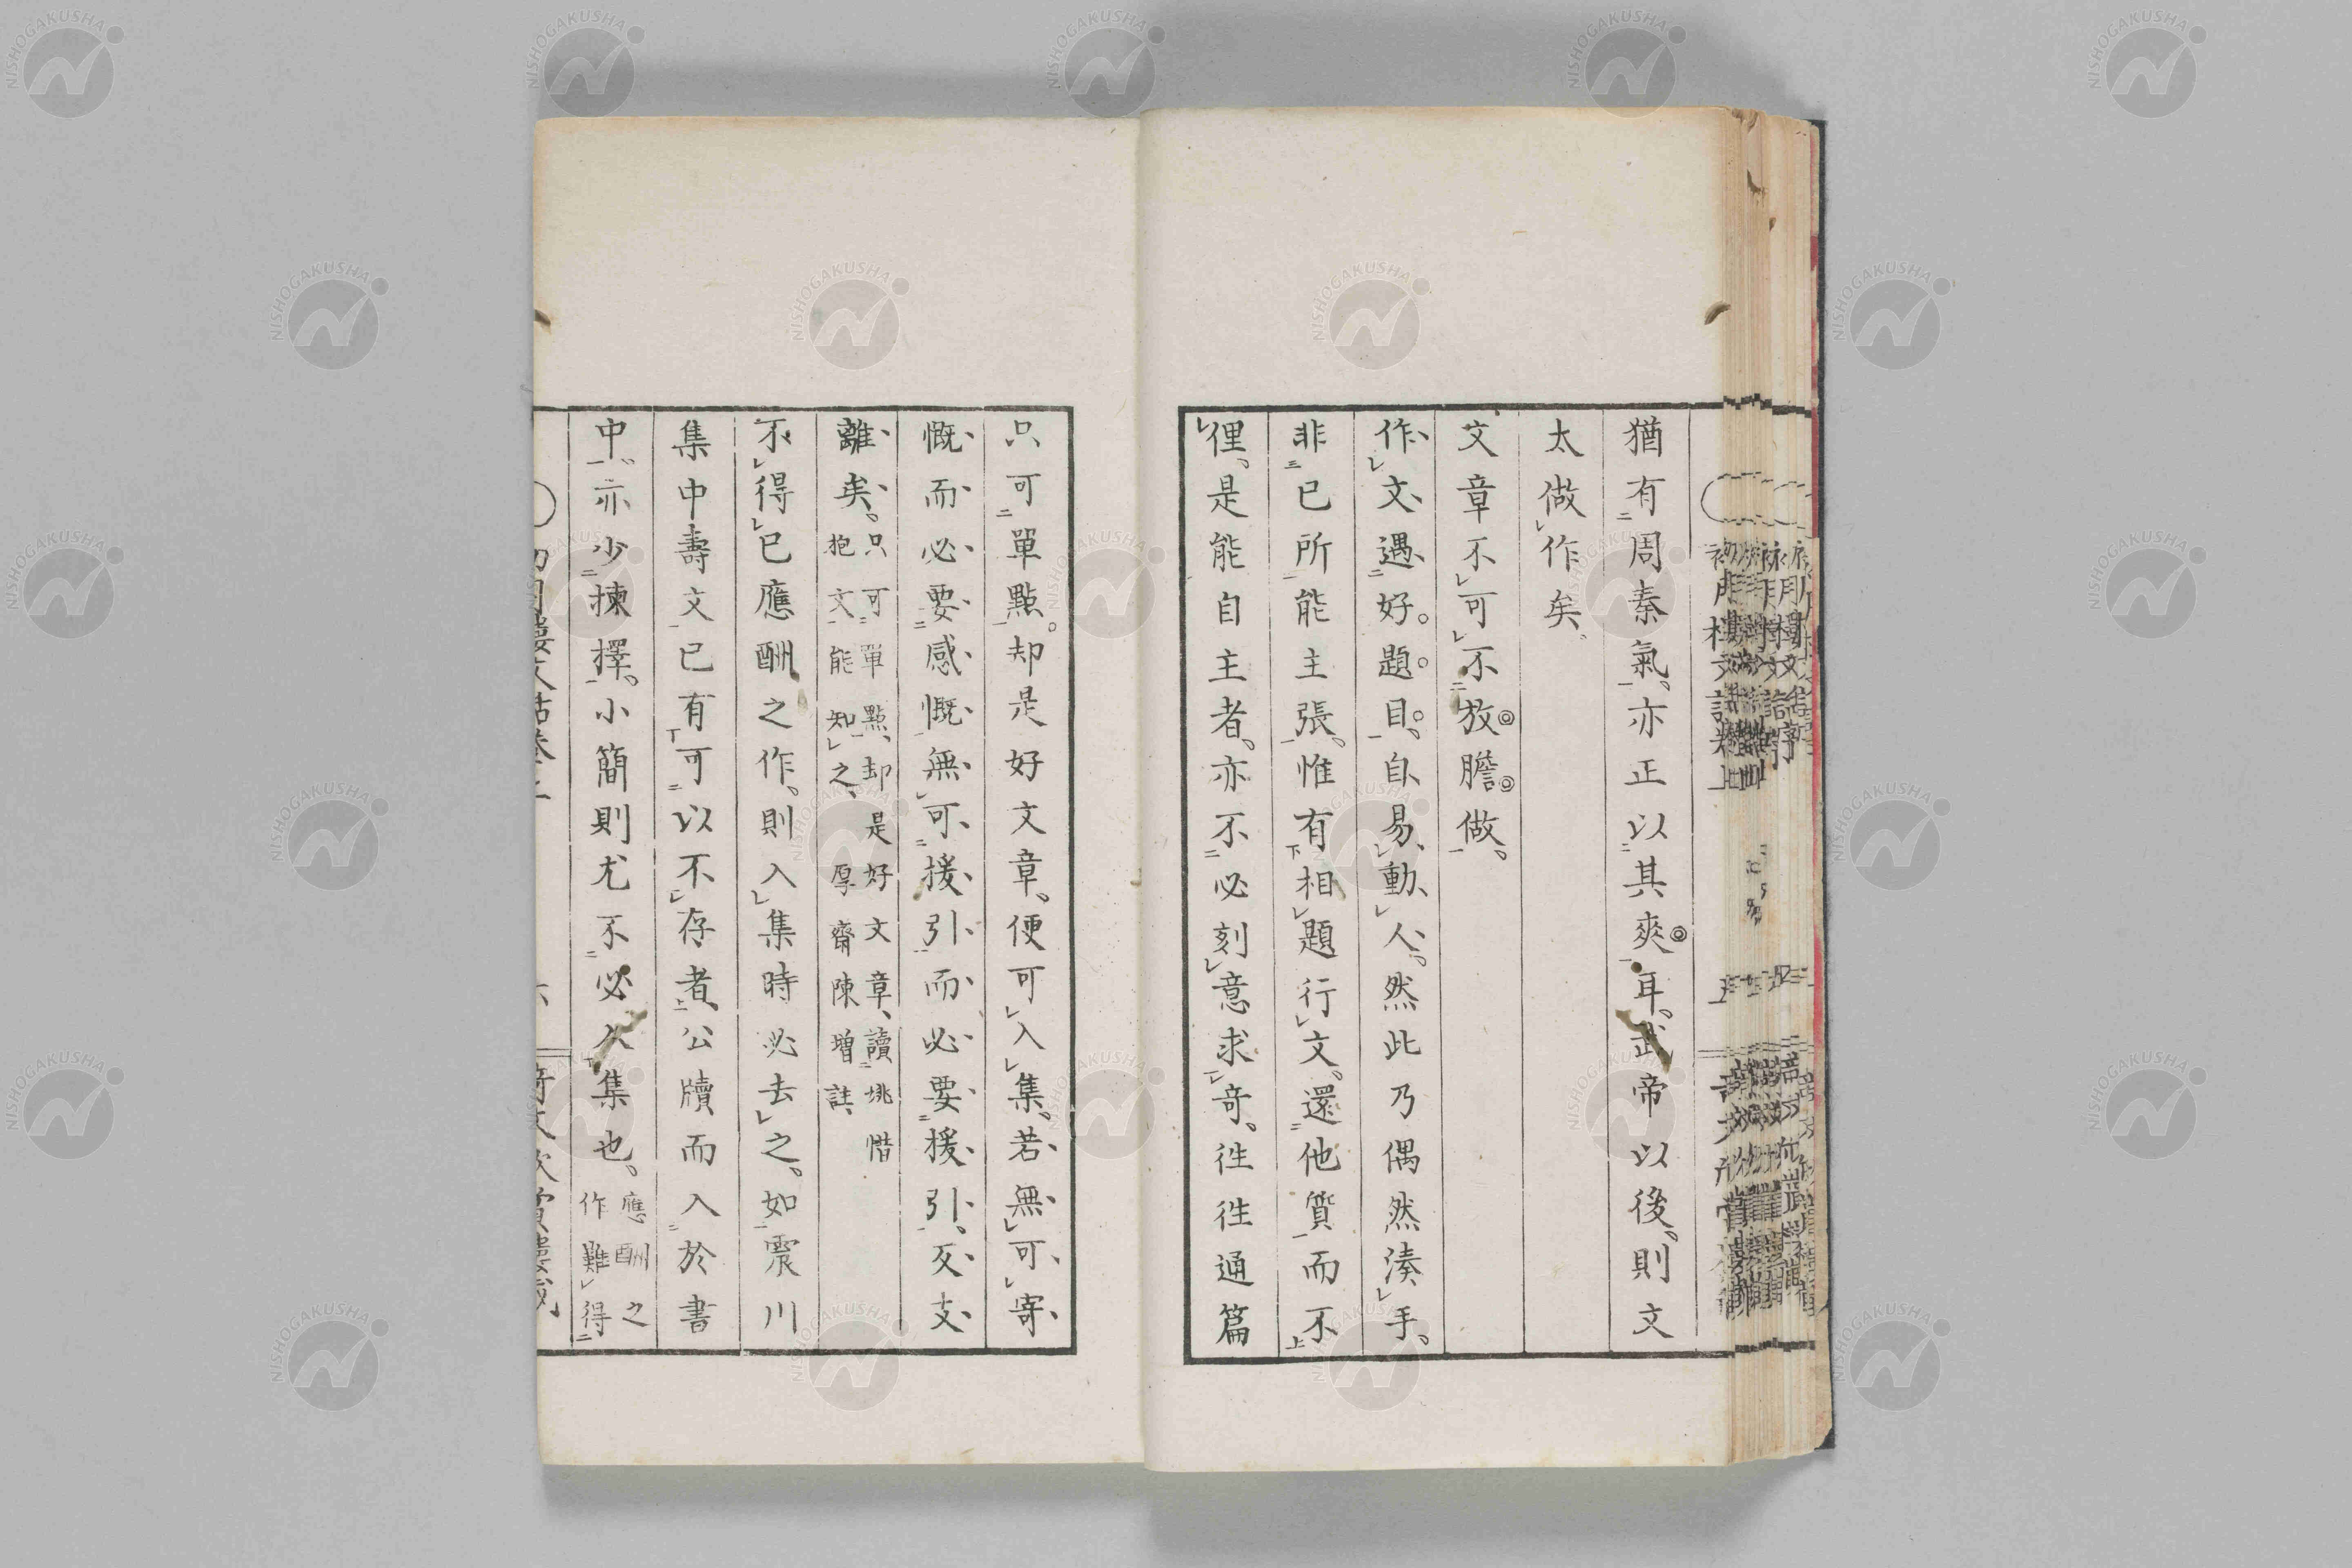 猶有周秦氣亦正以其爽耳武帝以後則文
太做作矣
文章不可不放膽做
作文遇好題目自易動人然此乃偶然湊手
非已所能主張惟有相題行文還他質而不
俚是能自主者亦不必刻意求奇徃徃通篇
只可單點却是好文章便可入集若無可寄
慨而必要感慨無可援引而必要援引支
離矣只可單點却是好文章讀姚惜
抱文能知之厚齋陳增註
不得已應酬之作則入集時必去之如震川
集中壽文已有可以不存者公牘而入於書
中亦少揀擇小簡則尤不必入集也應酬之
作難得
NISHOGAKUSHA